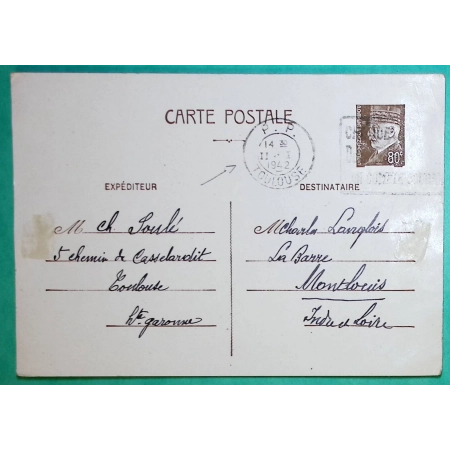 CARTE POSTALE
P.P.
14 H
II - I
1942
TOULOUSE
80c
EXPÉDITEUR
M ch Soulé
5 chemin de Casselardit
Toulouse
hte garonne
DESTINATAIRE
M Charles Langlois
La Barre
Montlouis
Indre et Loire